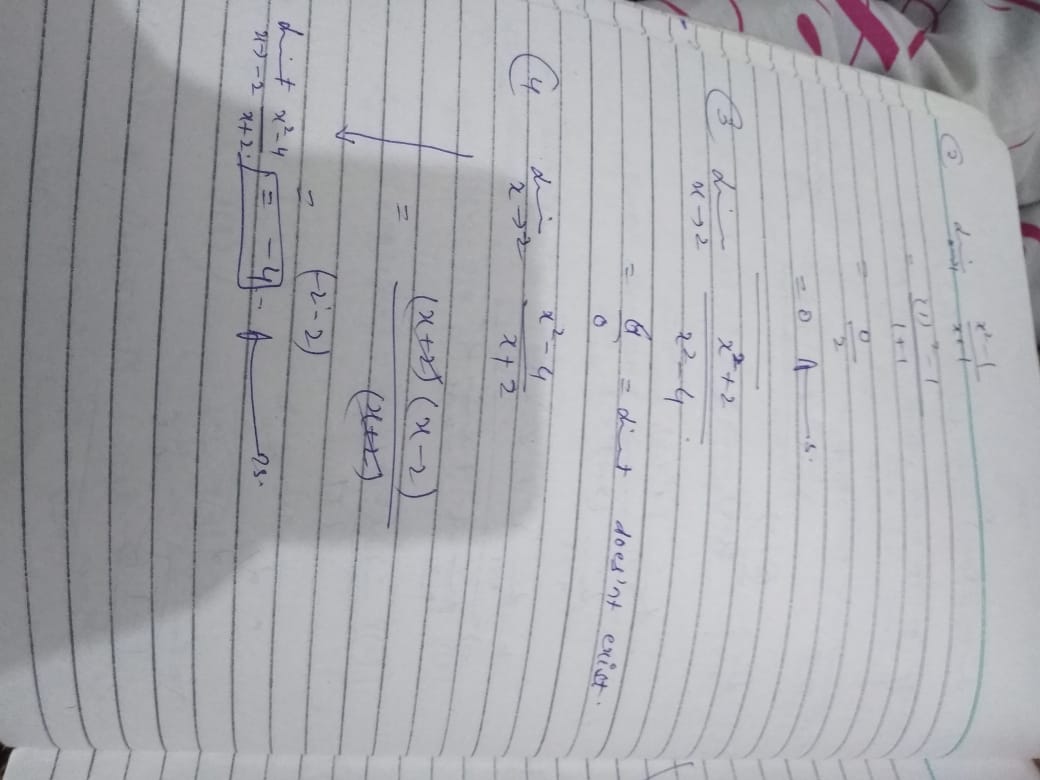 ② lim x² - 1
x + 1
= (1)² - 1
1 + 1
= 0
2
= 0 Ans.
③ lim x² + 2
x → 2 x² - 4
= 6 = limit does'nt exist.
0
④ lim x² - 4
x → -2 x + 2
= (x + 2) (x - 2)
(x + 2)
= (-2 - 2)
limit x² - 4 = -4. Ans.
x → -2 x + 2